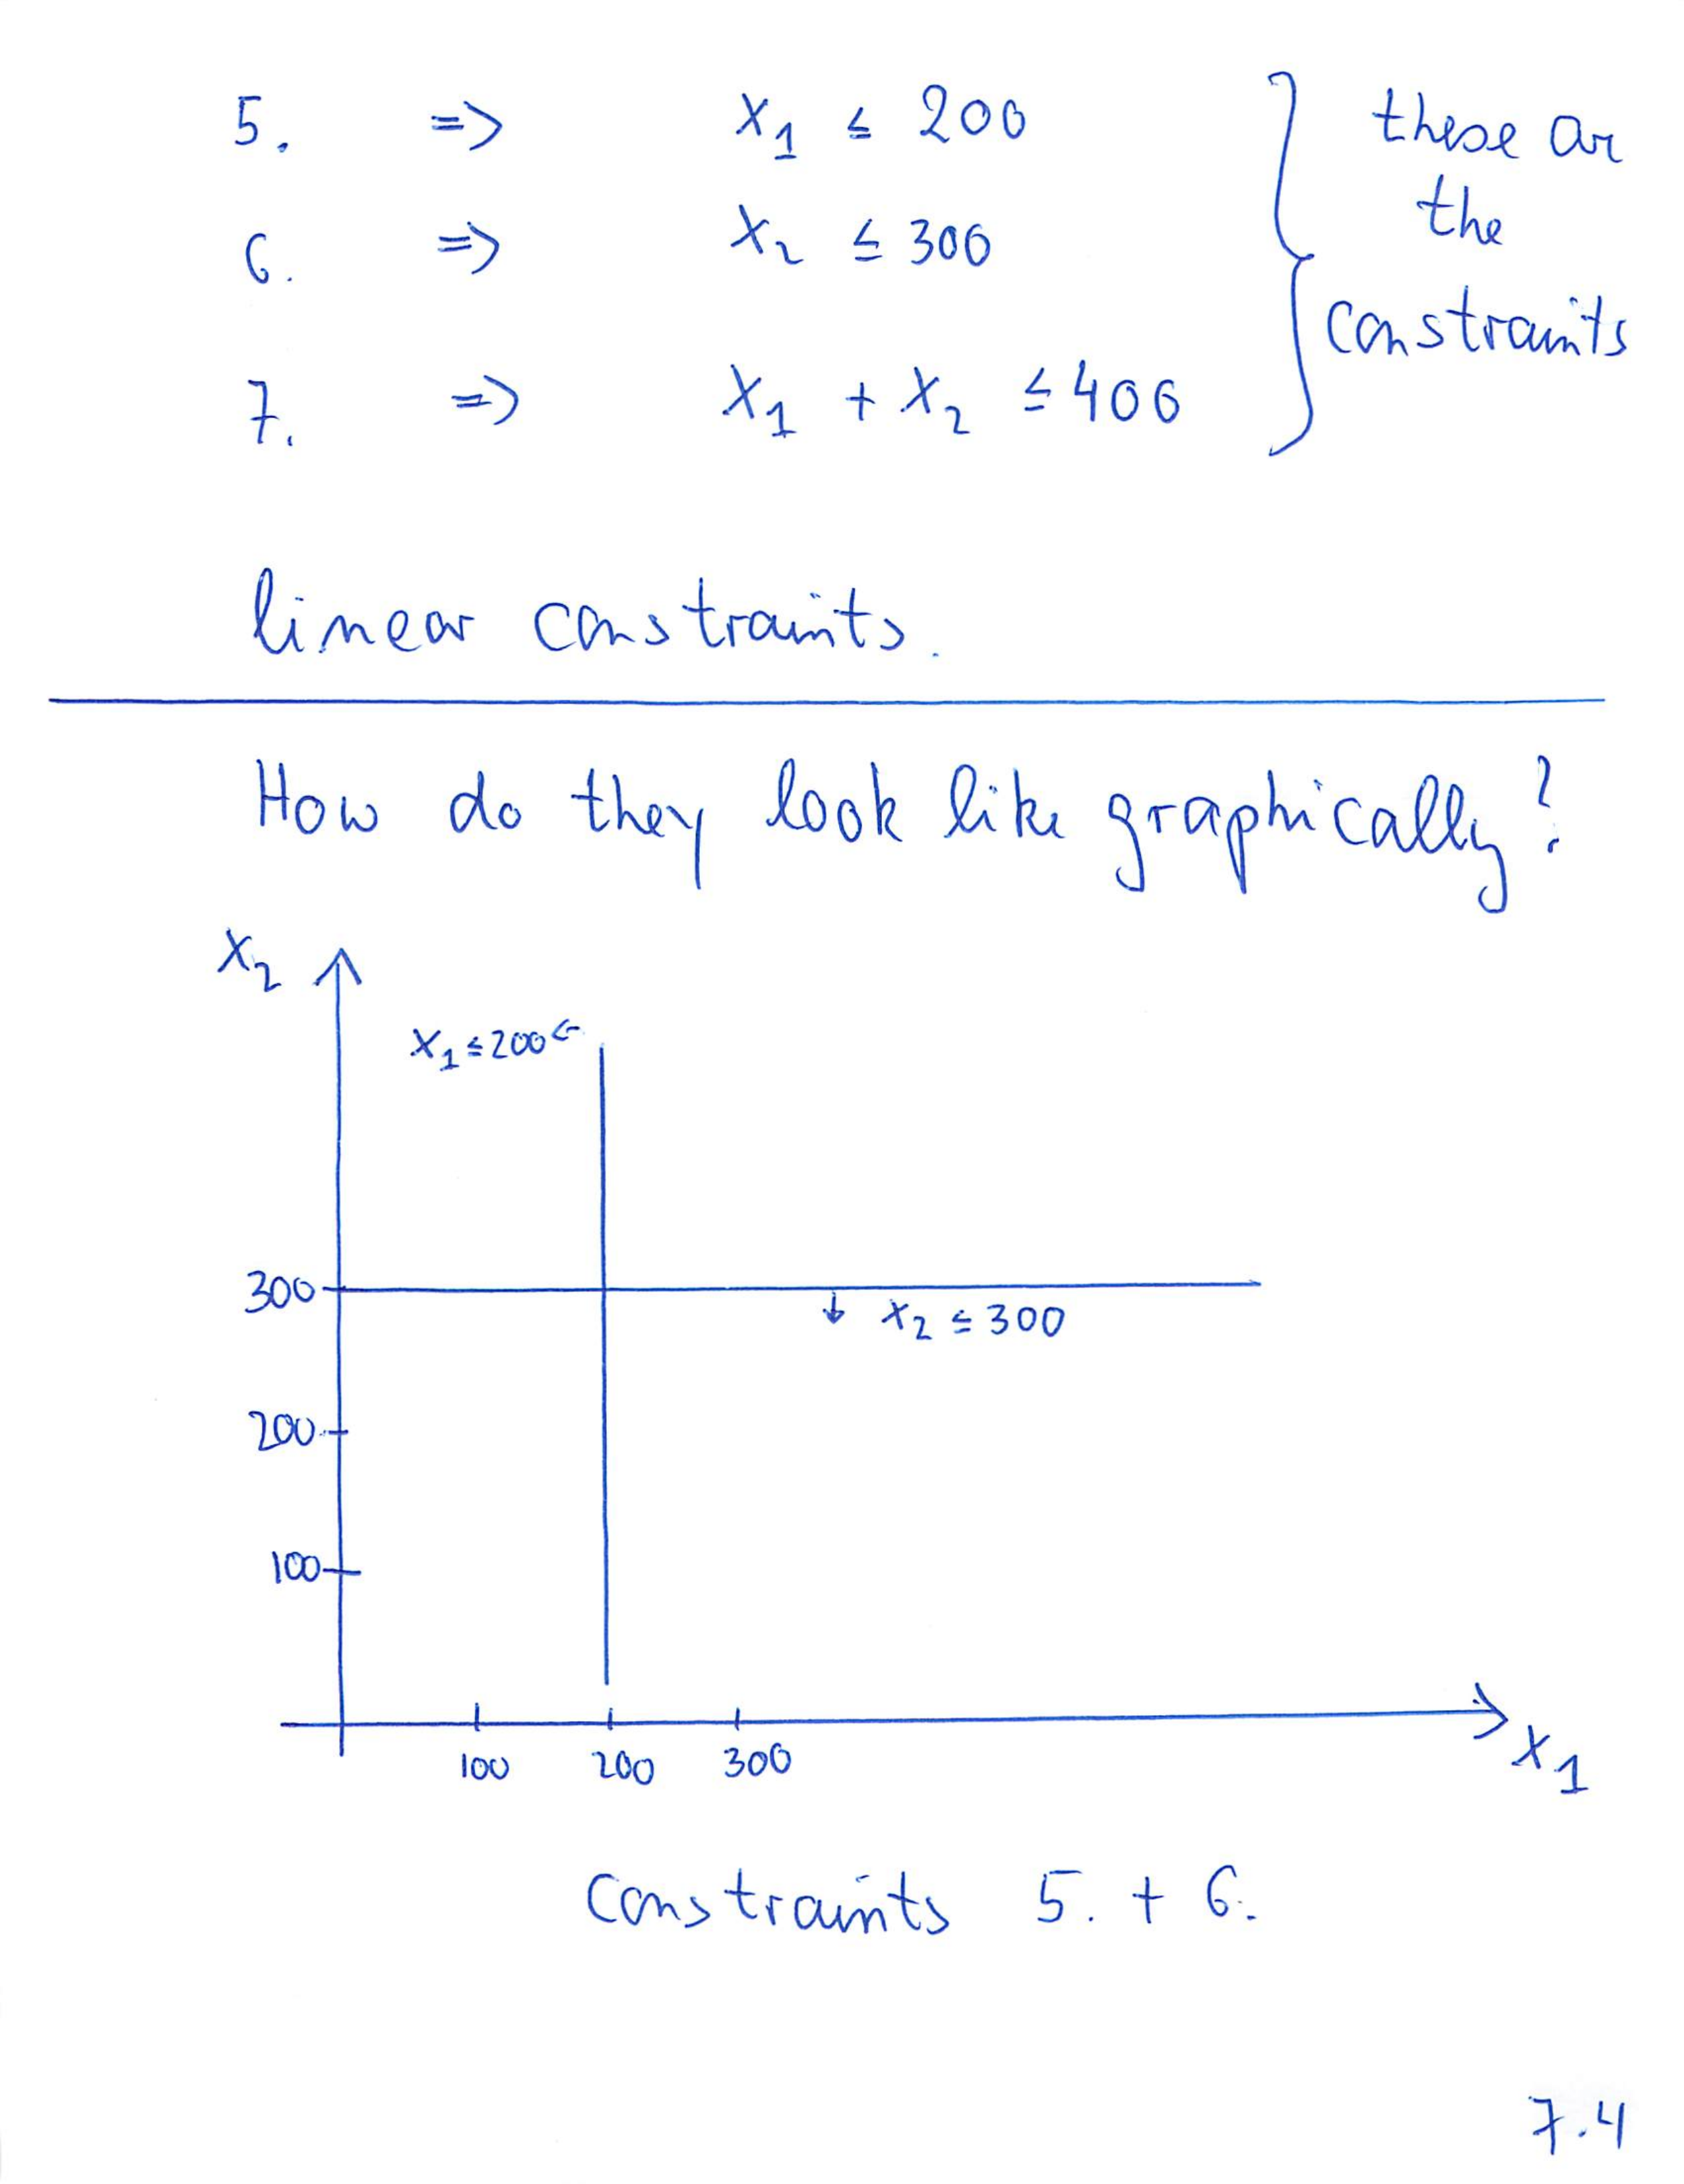 5. => x₁ ≤ 200
6. => x₂ ≤ 300
7. => x₁ + x₂ ≤ 400
these are
the
constraints
linear constraints.
How do they look like graphically?
x₂
x₁ ≤ 200 ←
300
↓ x₂ ≤ 300
200
100
100 200 300
x₁
constraints 5. + 6.
7.4